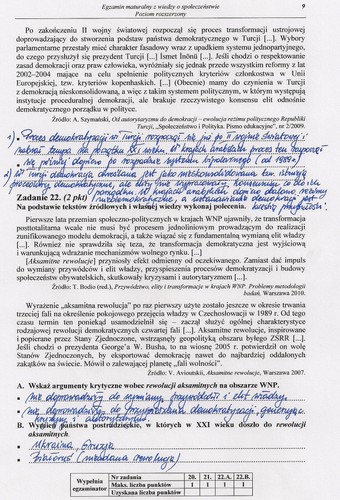 Egzamin maturalny z wiedzy o społeczeństwie 9
Poziom rozszerzony
Po zakończeniu II wojny światowej rozpoczął się proces transformacji ustrojowej
doprowadzający do stworzenia podstaw państwa demokratycznego w Turcji [...]. Wybory
parlamentarne przestały mieć charakter fasadowy wraz z upadkiem systemu jednopartyjnego,
do czego przysłużył się prezydent Turcji [...] Ismet İnönü [...]. Jeśli chodzi o respektowanie
zasad demokracji oraz praw człowieka, wyróżniały się jednak przede wszystkim reformy z lat
2002–2004 mające na celu spełnienie politycznych kryteriów członkostwa w Unii
Europejskiej, tzw. kryteriów kopenhaskich. [...] Obecnie mamy do czynienia w Turcji
z demokracją nieskonsolidowaną, a więc z takim systemem politycznym, w którym występują
instytucje proceduralnej demokracji, ale brakuje rzeczywistego konsensu elit odnośnie
demokratycznego porządku w polityce.
Źródło: A. Szymański, Od autorytaryzmu do demokracji – ewolucja reżimu politycznego Republiki
Turcji, „Społeczeństwo i Polityka. Pismo edukacyjne”, nr 2/2009.
1) Proces demokratyzacji w Turcji rozpoczął się już po II wojnie światowej i
nabrał tempa na początku XXI wieku. W krajach arabskich proces ten rozpoczął
się później dopiero po rozpadzie systemu bipolarnego (od 1989 r.)
2) W Turcji demokracja określana jest jako nieskonsolidowana tzn. istnieją
procedury demokratyczne, ale elity nie wypracowały konsensusu co do ich
Zadanie 22. (2 pkt)
Na podstawie tekstów źródłowych i własnej wiedzy wykonaj polecenia.
Pierwsze lata przemian społeczno-politycznych w krajach WNP ujawniły, że transformacja
posttotalitarna wcale nie musi być procesem jednoliniowym prowadzącym do realizacji
zunifikowanego modelu demokracji, a także wiązać się z fundamentalną wymianą elit władzy
[...]. Również nie sprawdziła się teza, że transformacja demokratyczna jest wyjściową
i warunkującą wdrażanie mechanizmów wolnego rynku. [...]
[Aksamitne rewolucje] przyniosły efekt odmienny od oczekiwanego. Zamiast dać impuls
do wymiany przywódców i elit władzy, przyspieszenia procesów demokratyzacji i budowy
społeczeństw obywatelskich, skutkowały kryzysami i autorytaryzmem [...].
Źródło: T. Bodio (red.), Przywództwo, elity i transformacje w krajach WNP. Problemy metodologii
badań, Warszawa 2010.
Wyrażenie „aksamitna rewolucja” po raz pierwszy użyte zostało jeszcze w okresie trwania
trzeciej fali na określenie pokojowego przejęcia władzy w Czechosłowacji w 1989 r. Od tego
czasu termin ten poniekąd usamodzielnił się – zaczął służyć ogólnej charakterystyce
rodzajowej rewolucji demokratycznych czwartej fali [...]. Aksamitne rewolucje, inspirowane
i popierane przez Stany Zjednoczone, wstrząsnęły geopolityką obszaru byłego ZSRR [...].
Jeśli chodzi o prezydenta George’a W. Busha, to na wiosnę 2005 r. potwierdził on wolę
Stanów Zjednoczonych, by eksportować demokrację nawet do najbardziej oddalonych
zakątków na świecie. Mówił o zalewającej planetę „fali wolności”.
Źródło: V. Avioutskii, Aksamitne rewolucje, Warszawa 2007.
A. Wskaż argumenty krytyczne wobec rewolucji aksamitnych na obszarze WNP.
• nie doprowadziły do wymiany przywódców i elit władzy
• nie doprowadziły do przyspieszenia demokratyzacji, generując
kryzysy i autorytaryzm
B. Wymień państwa postradzieckie, w których w XXI wieku doszło do rewolucji
aksamitnych.
• Ukraina, Gruzja
• Białoruś (nieudana rewolucja)
Wypełnia
egzaminator
Nr zadania 20. 21. 22.A. 22.B.
Maks. liczba punktów 1 1 1 1
Uzyskana liczba punktów